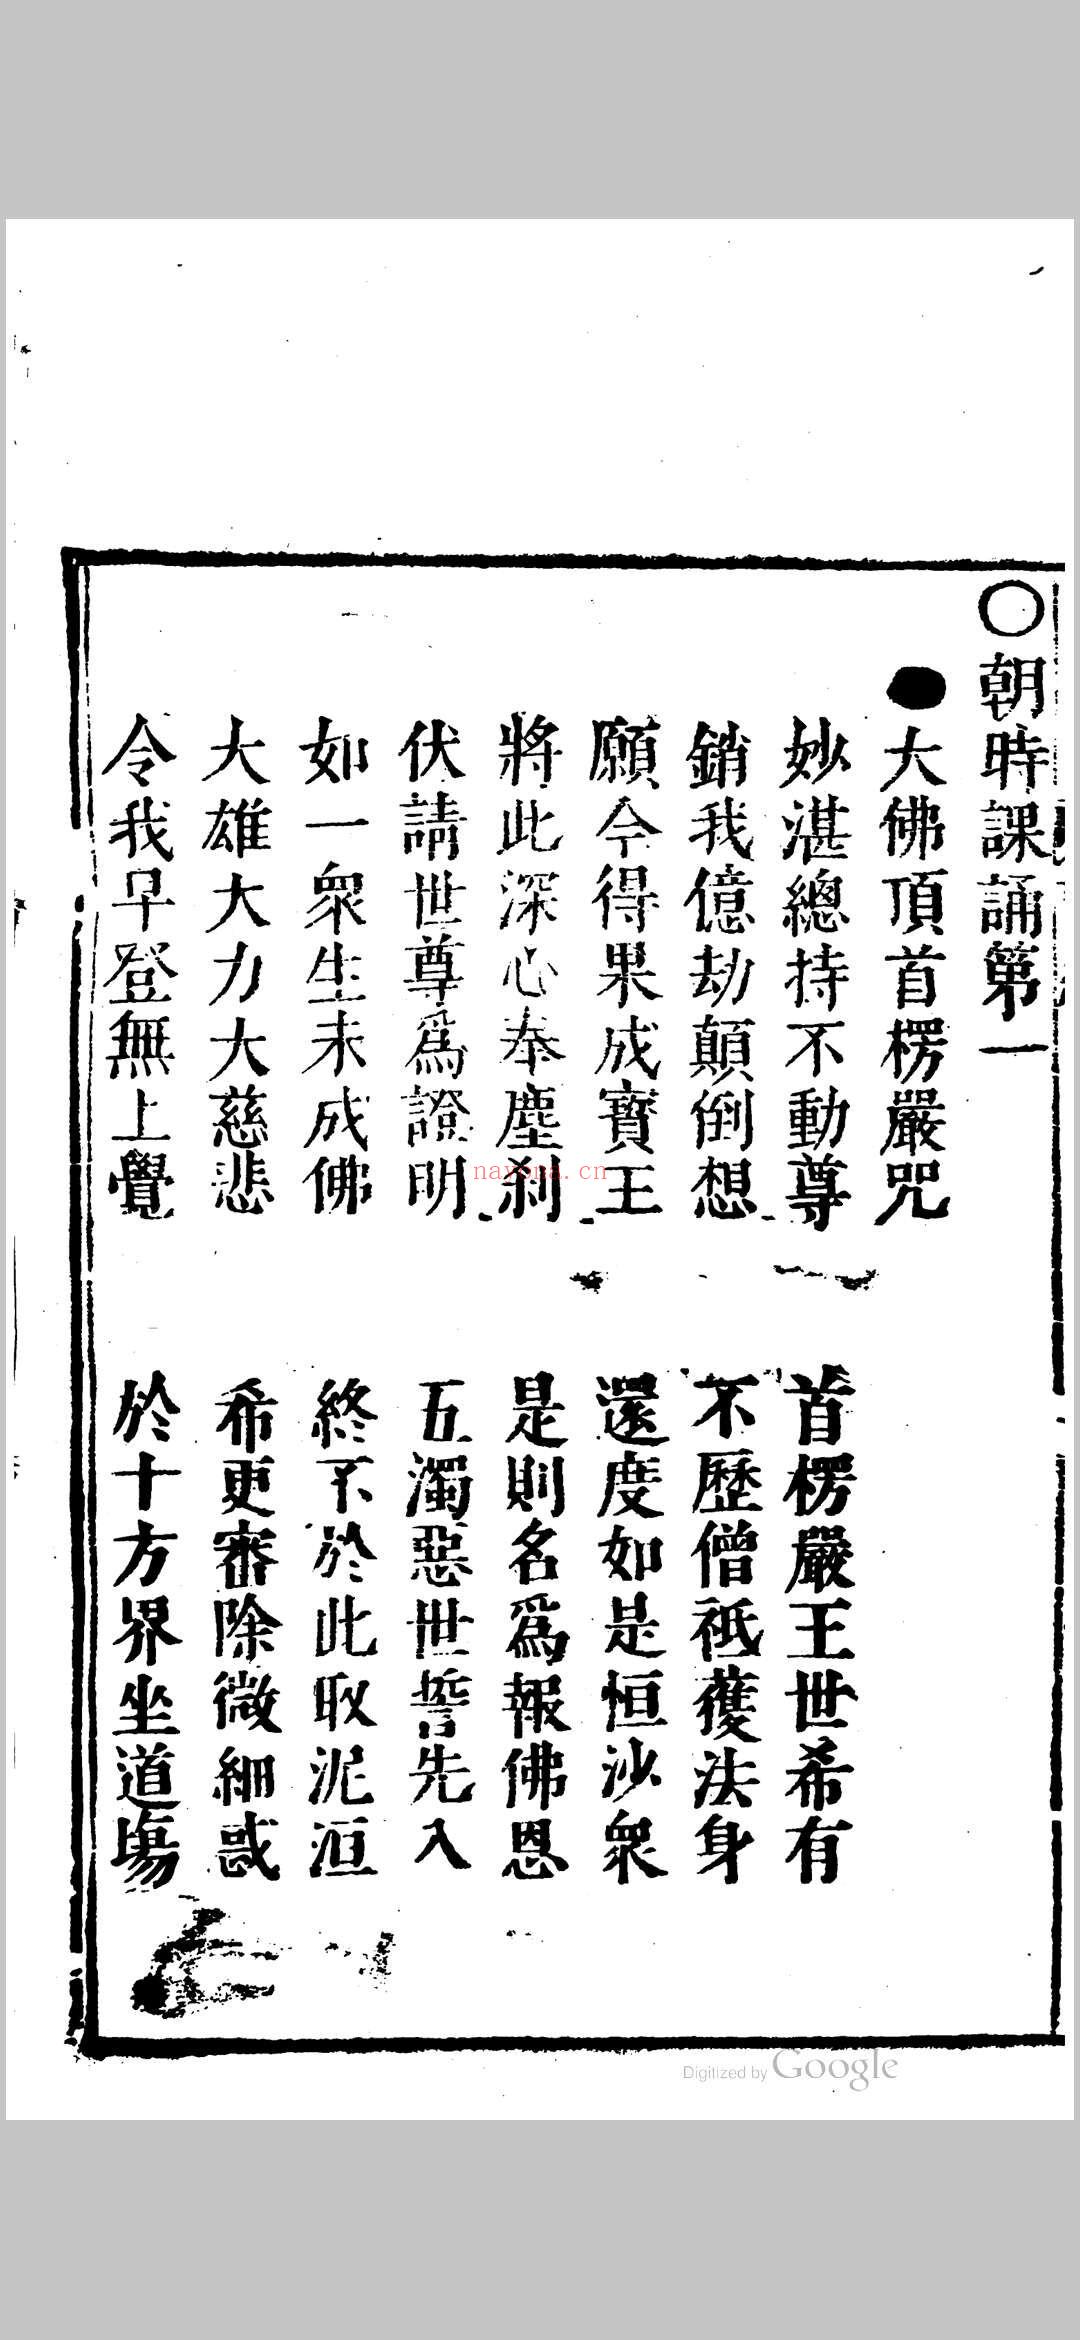 ○朝時課誦第一
●大佛頂首楞嚴咒
妙湛總持不動尊　首楞嚴王世希有
銷我億劫顛倒想　不歷僧祇獲法身
願今得果成寶王　還度如是恒沙衆
將此深心奉塵刹　是則名爲報佛恩
伏請世尊爲證明　五濁惡世誓先入
如一衆生未成佛　終不於此取泥洹
大雄大力大慈悲　希更審除微細惑
令我早登無上覺　於十方界坐道場
nayona.cn
Digitized by Google